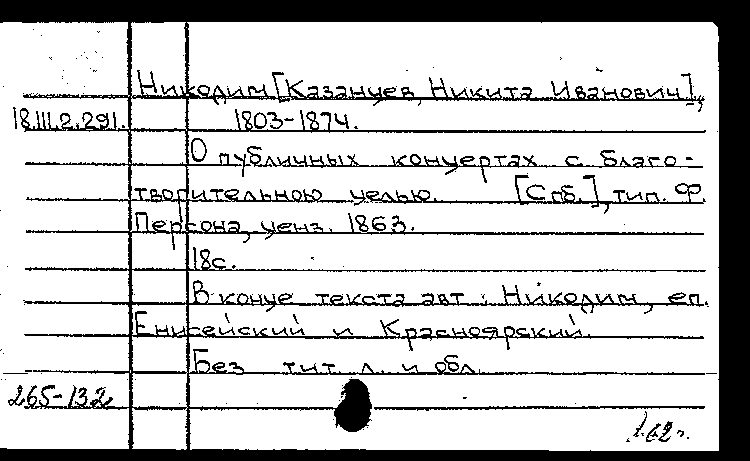 Никодим [Казанцев, Никита Иванович],
18.III.2.291. 1803-1874.
О публичных концертах с благо-
творительною целью. [Спб.], тип. Ф.
Персона, ценз. 1863.
18с.
В конце текста авт.: Никодим, еп.
Енисейский и Красноярский.
Без тит. л. и обл.
265-132